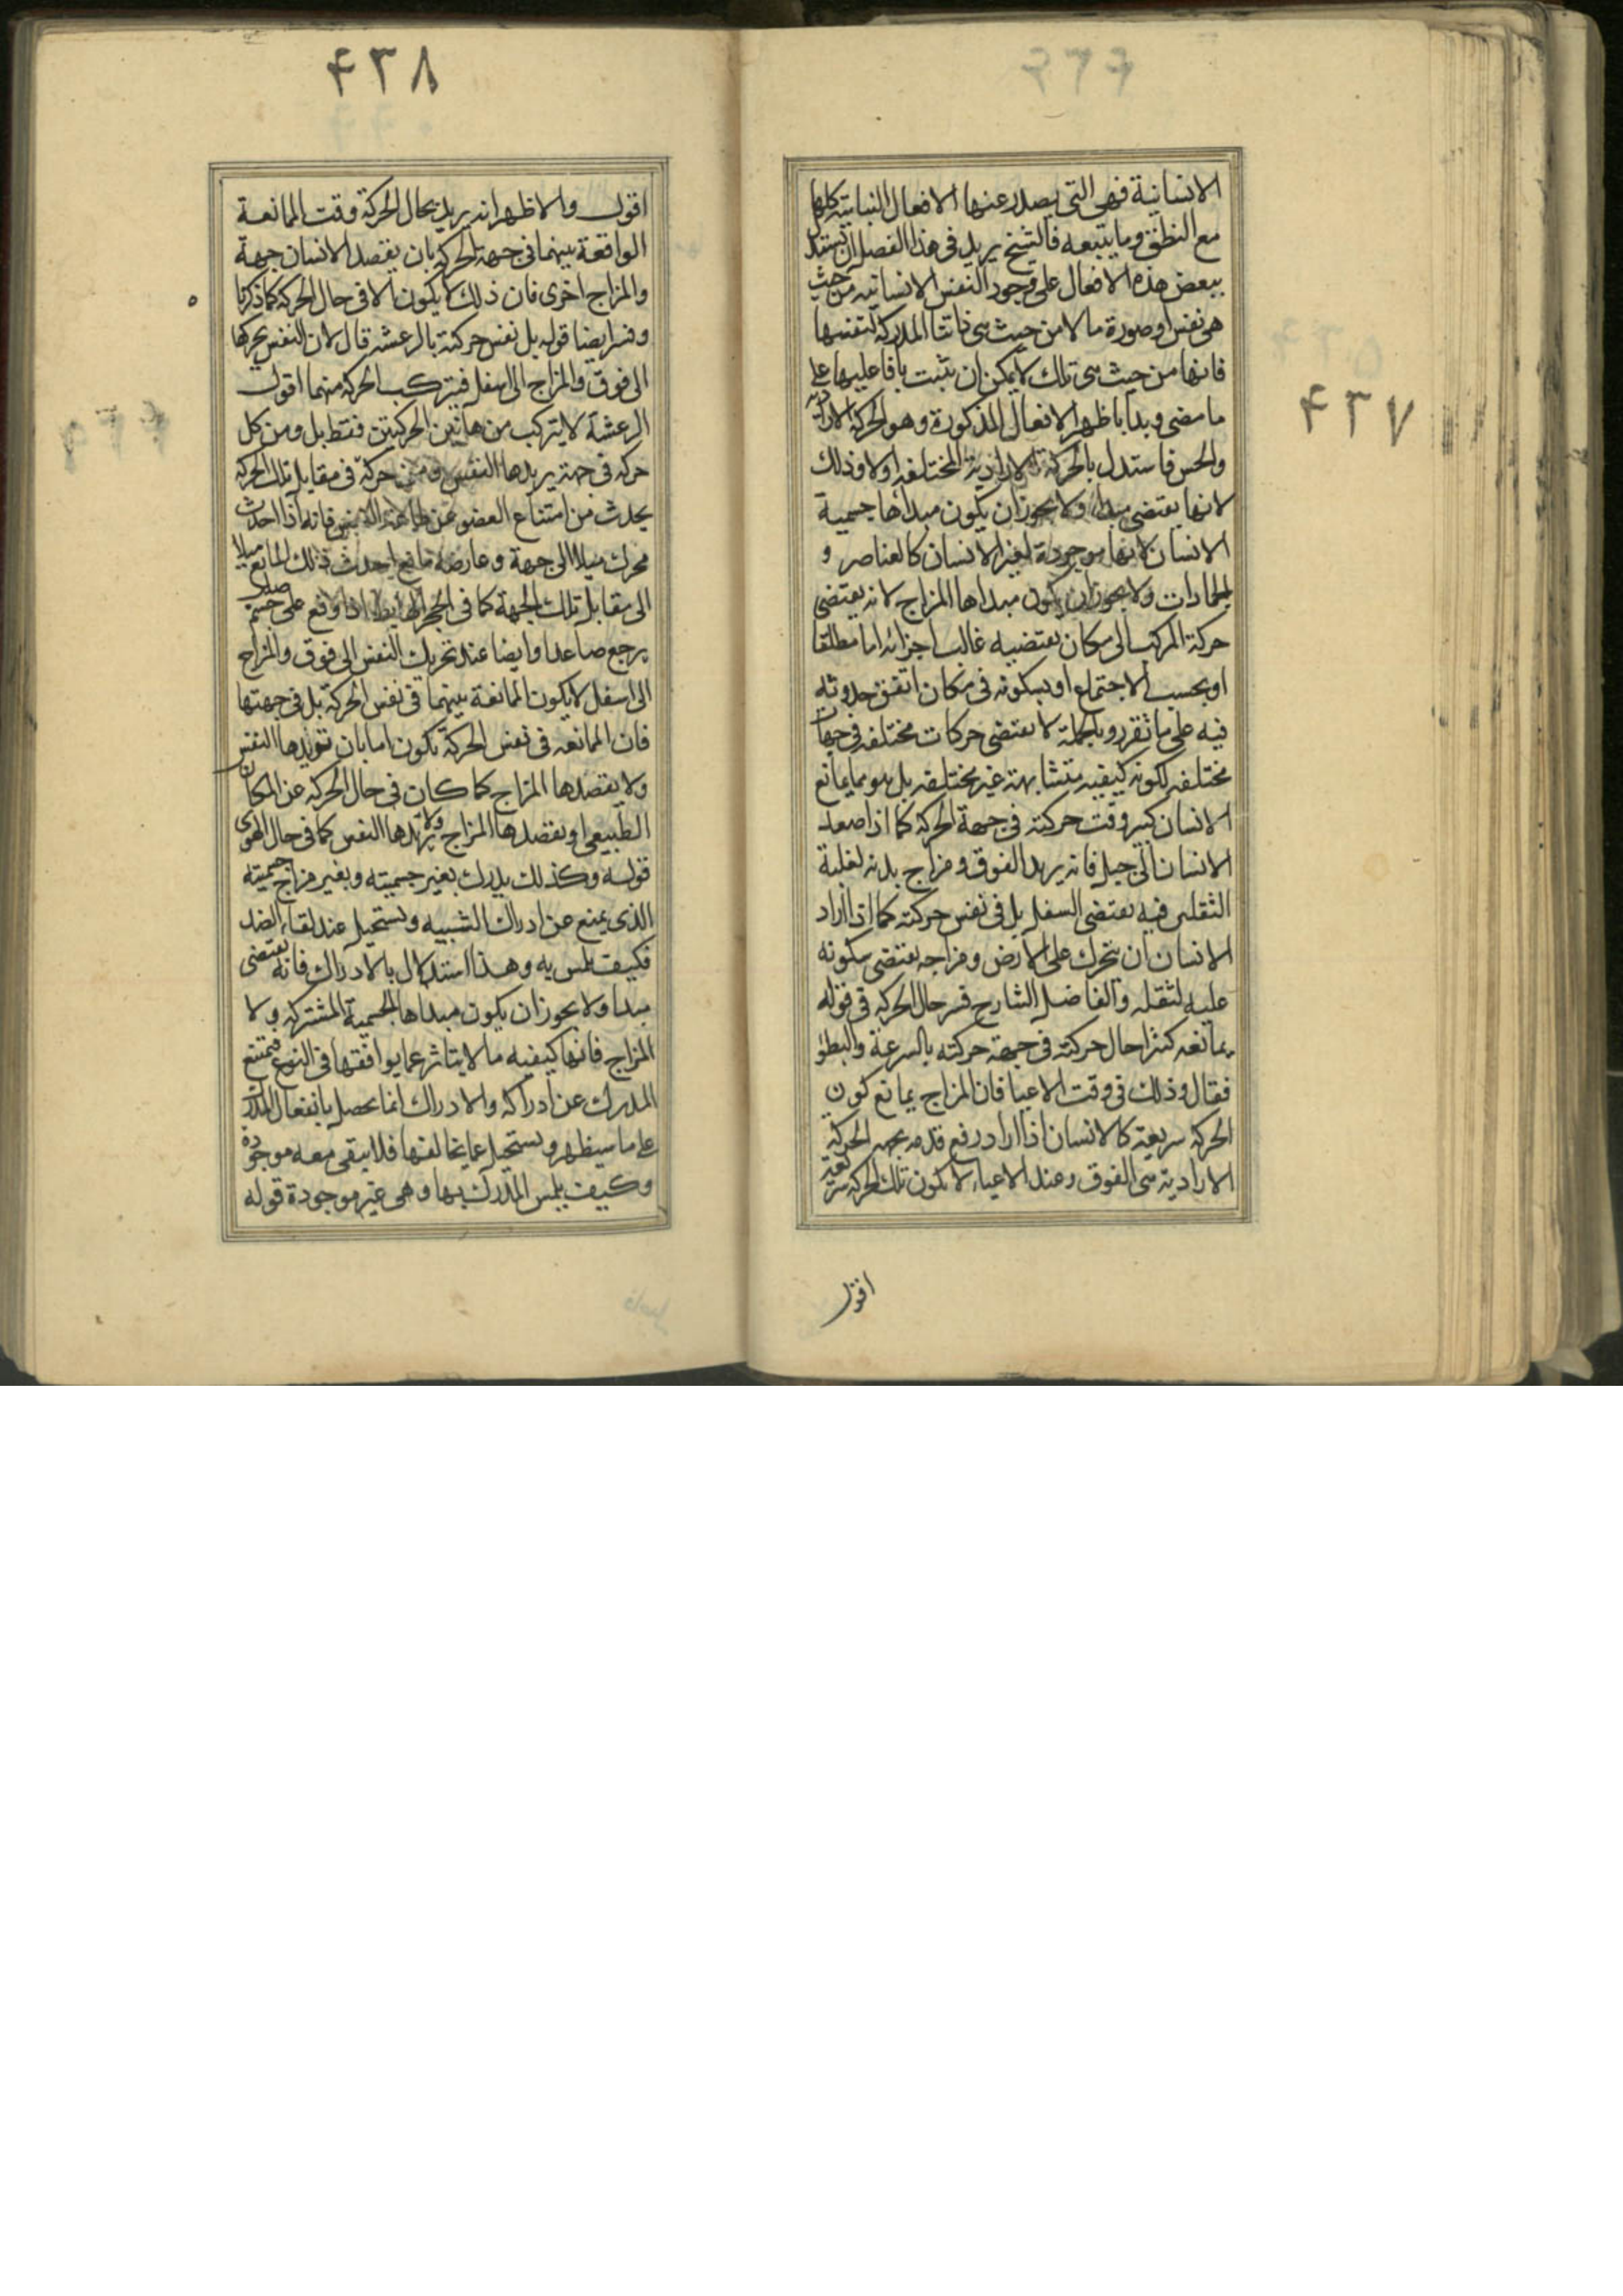 ۴۳۷
الانسانية فهى التى يصدر عنها الافعال النباتية كلها
مع النطق وما يتبعه فالشيخ يريد فى هذا الفصل ان يستدل
ببعض هذه الافعال على وجود النفس الانسانيه من حيث
هى نفس او صورة ما لا من حيث هى ذاتنا المدركة لنفسها
فانها من حيث هى تلك لا يمكن ان تثبت بافاعليها على
ما مضى وبدا باظهر الافعال المذكورة وهو الحركة الارادية
والحس فاستدل بالحركة الارادية المختلفه اولا وذلك
لانها يقتضى مبدا ولا يجوز ان يكون مبداها جسمية
الانسان لانها موجودة لغير الانسان كالعناصر و
الجمادات ولا يجوز ان يكون مبداها المزاج لانه يقتضى
حركة المركب الى مكان يقتضيه غالب اجزائه اما مطلقا
او بحسب الاجتماع او بسكونه فى مكان اتفق حدوثه
فيه على ما تقرر وبالجملة لا يقتضى حركات مختلفه فى جهات
مختلفه لكونه كيفيه متشابهة غير مختلفه بل هو مما يمانع
الانسان كثيرا وقت حركته فى جهة الحركه كما اذا صعد
الانسان الى جبل فانه يريد الفوق ومزاج بدنه لغلبة
الثقلين فيه يقتضى السفل بل فى نفس حركته كما اذا اراد
الانسان ان يتحرك على الارض ومزاجه يقتضى سكونه
عليه لثقله والفاضل الشارح فسر حال الحركه فى قوله
يمانعه كثيرا حال حركته فى جهة حركته بالسرعة والبطؤ
فقال وذلك فى وقت الاعيا فان المزاج يمانع كون
الحركه سريعة كالانسان اذا اراد رفع قدمه بجهة الحركة
الارادية هى الفوق وعند الاعياء لا يكون تلك الحركه سريعة
اقول
۴۳۸
اقول والاظهر انه يريد بحال الحركة وقت الممانعة
الواقعة بينهما فى جهة الحركه بان يقصد الانسان جهة
والمزاج اخرى فان ذلك لا يكون الا فى حال الحركه كما ذكرنا
وفسر ايضا قوله بل نفس حركته بالرعشه قال لان النفس يحركها
الى فوق والمزاج الى اسفل فيتركب الحركة منهما اقول
الرعشة لا يتركب من هاتين الحركتين فقط بل ومن كل
حركه فى جهة يريدها النفس ومن حركة فى مقابل تلك الحركه
يحدث من امتناع العضو عن طاعة النفس فانه اذا احدث
محرك ميلا الى جهة وعارضه مانع احدث ذلك المانع ميلا
الى مقابل تلك الجهة كما فى الحجر الهابط اذا وقع على جسم صلب
يرجع صاعدا وايضا عند تحريك النفس الى فوق والمزاج
الى اسفل لا يكون الممانعة بينهما فى نفس الحركة بل فى جهتها
فان الممانعه فى نفس الحركة يكون اما بان تريدها النفس
ولا يقصدها المزاج كما كان فى حال الحركه عن المكان
الطبيعى او يقصدها المزاج ولا يريدها النفس كما فى حال الهوى
قوله وكذلك يدرك بغير جسميته وبغير مزاج جسميته
الذى يمنع عن ادراك الشبيه ويستحيل عند لقاء الضد
فكيف يلمس به وهذا استدلال بالادراك فانه يقتضى
مبدا ولا يجوز ان يكون مبداها الجسمية المشتركه ولا
المزاج فانها كيفيه ما لا يتاثر عما يوافقها فى النوع فيمتنع
المدرك عن ادراكه والادراك انما يحصل بانفعال المدرك
على ما سيظهر ويستحيل عما يخالفها فلا يبقى معه موجودة
وكيف يلمس المدرك بها وهى غير موجودة قوله